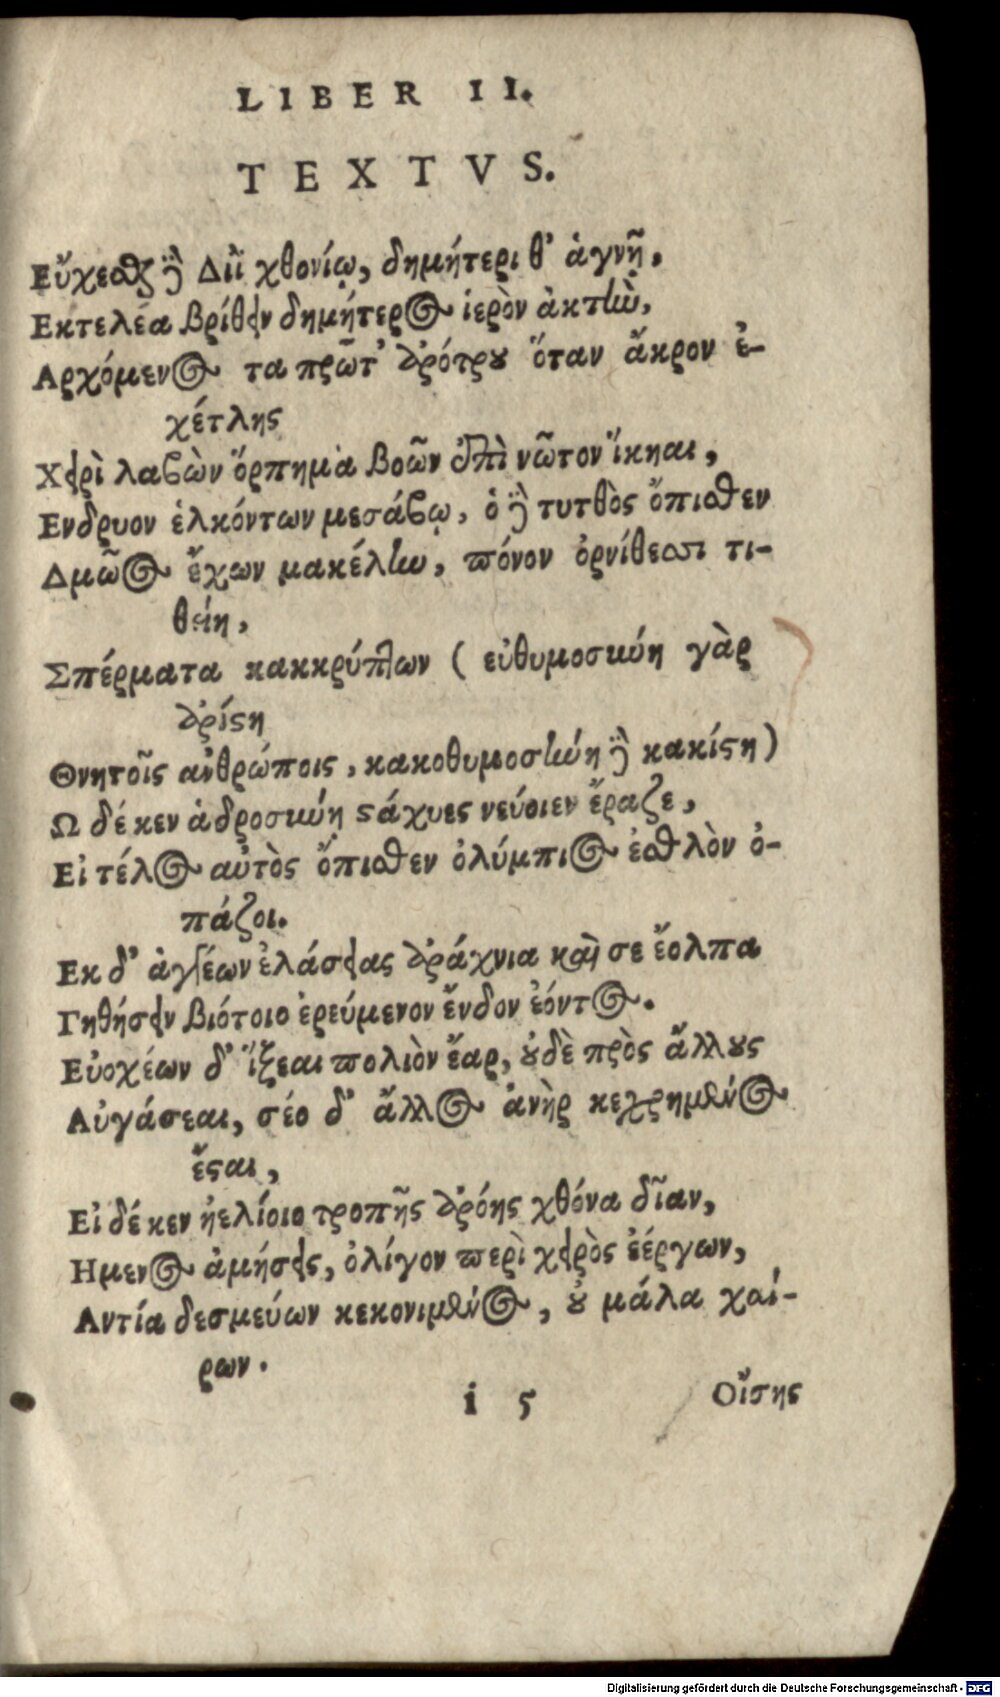 LIBER II.
TEXTVS.
Εὔχεσθαι δὲ Διῒ χθονίῳ, δημήτερι θ' ἁγνῇ,
Εκτελέα βρίθειν δημήτερος ἱερὸν ἀκτὼ,
Αρχόμενος τα πρῶτ' ἀρότρου ὅταν ἄκρον ἐ-
χέτλης
Χειρὶ λαβὼν ὅρπημα βοῶν ἐπὶ νῶτον ἵκηαι,
Ενδρυον ἑλκόντων μεσάβῳ, ὁ δὲ τυτθὸς ὄπισθεν
Δμῶος ἔχων μακέλην, πόνον ὀρνίθεσσι τι-
θείη,
Σπέρματα κακκρύπτων ( εὐθυμοσύνη γὰρ
ἀρίστη
Θνητοῖς ἀνθρώποις, κακοθυμοσύνη δὲ κακίστη)
Ω δέ κεν ἁδροσύνῃ στάχυες νεύοιεν ἔραζε,
Εἰ τέλος αὐτὸς ὄπισθεν ὀλύμπιος ἐσθλὸν ὀ-
πάζοι.
Εκ δ' ἀγγέων ἐλάσειας ἀράχνια καὶ σε ἔολπα
Γηθήσειν βιότοιο ἐρεύμενον ἔνδον ἐόντος.
Εὐοχέων δ' ἵξεαι πολιὸν ἔαρ, οὐδὲ πρὸς ἄλλους
Αὐγάσεαι, σέο δ' ἄλλος ἀνὴρ κεχρημένος
ἔσται,
Εἰ δέ κεν ἠελίοιο τροπῇς ἀρόῃς χθόνα δῖαν,
Ημενος ἀμήσεις, ὀλίγον περὶ χειρὸς ἐέργων,
Αντία δεσμεύων κεκονιμένος, οὐ μάλα χαί-
ρων.
i 5 Οἴσῃς
Digitalisierung gefördert durch die Deutsche Forschungsgemeinschaft - DFG